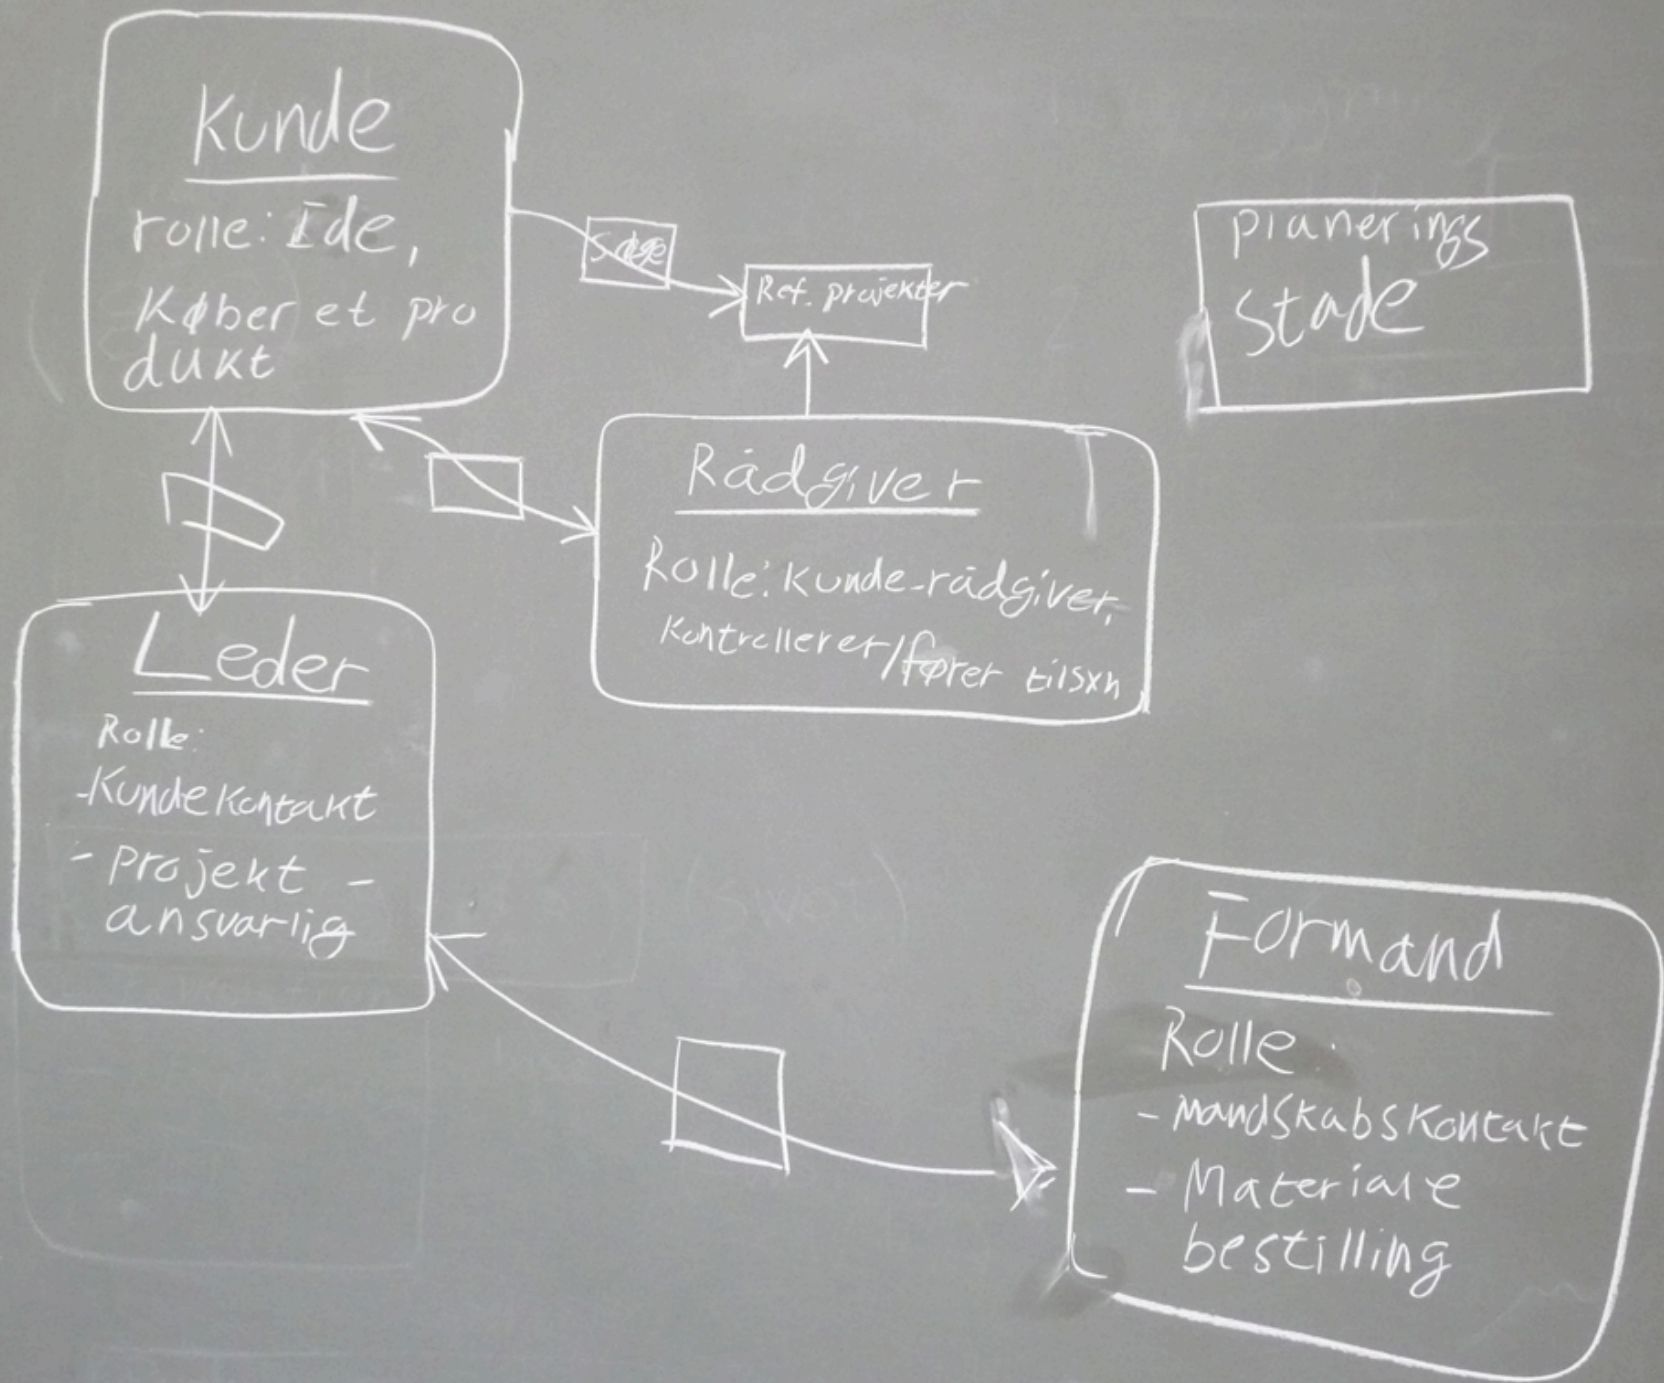 Kunde
rolle: Ide,
Køber et pro
dukt
Søge
Ref. projekter
planerings
stade
Rådgiver
Rolle: Kunde-rådgiver,
Kontrollerer/fører tilsyn
Leder
Rolle:
-Kundekontakt
- projekt -
ansvarlig
(swot)
Formand
Rolle:
- Mandskabskontakt
- Materiale
bestilling